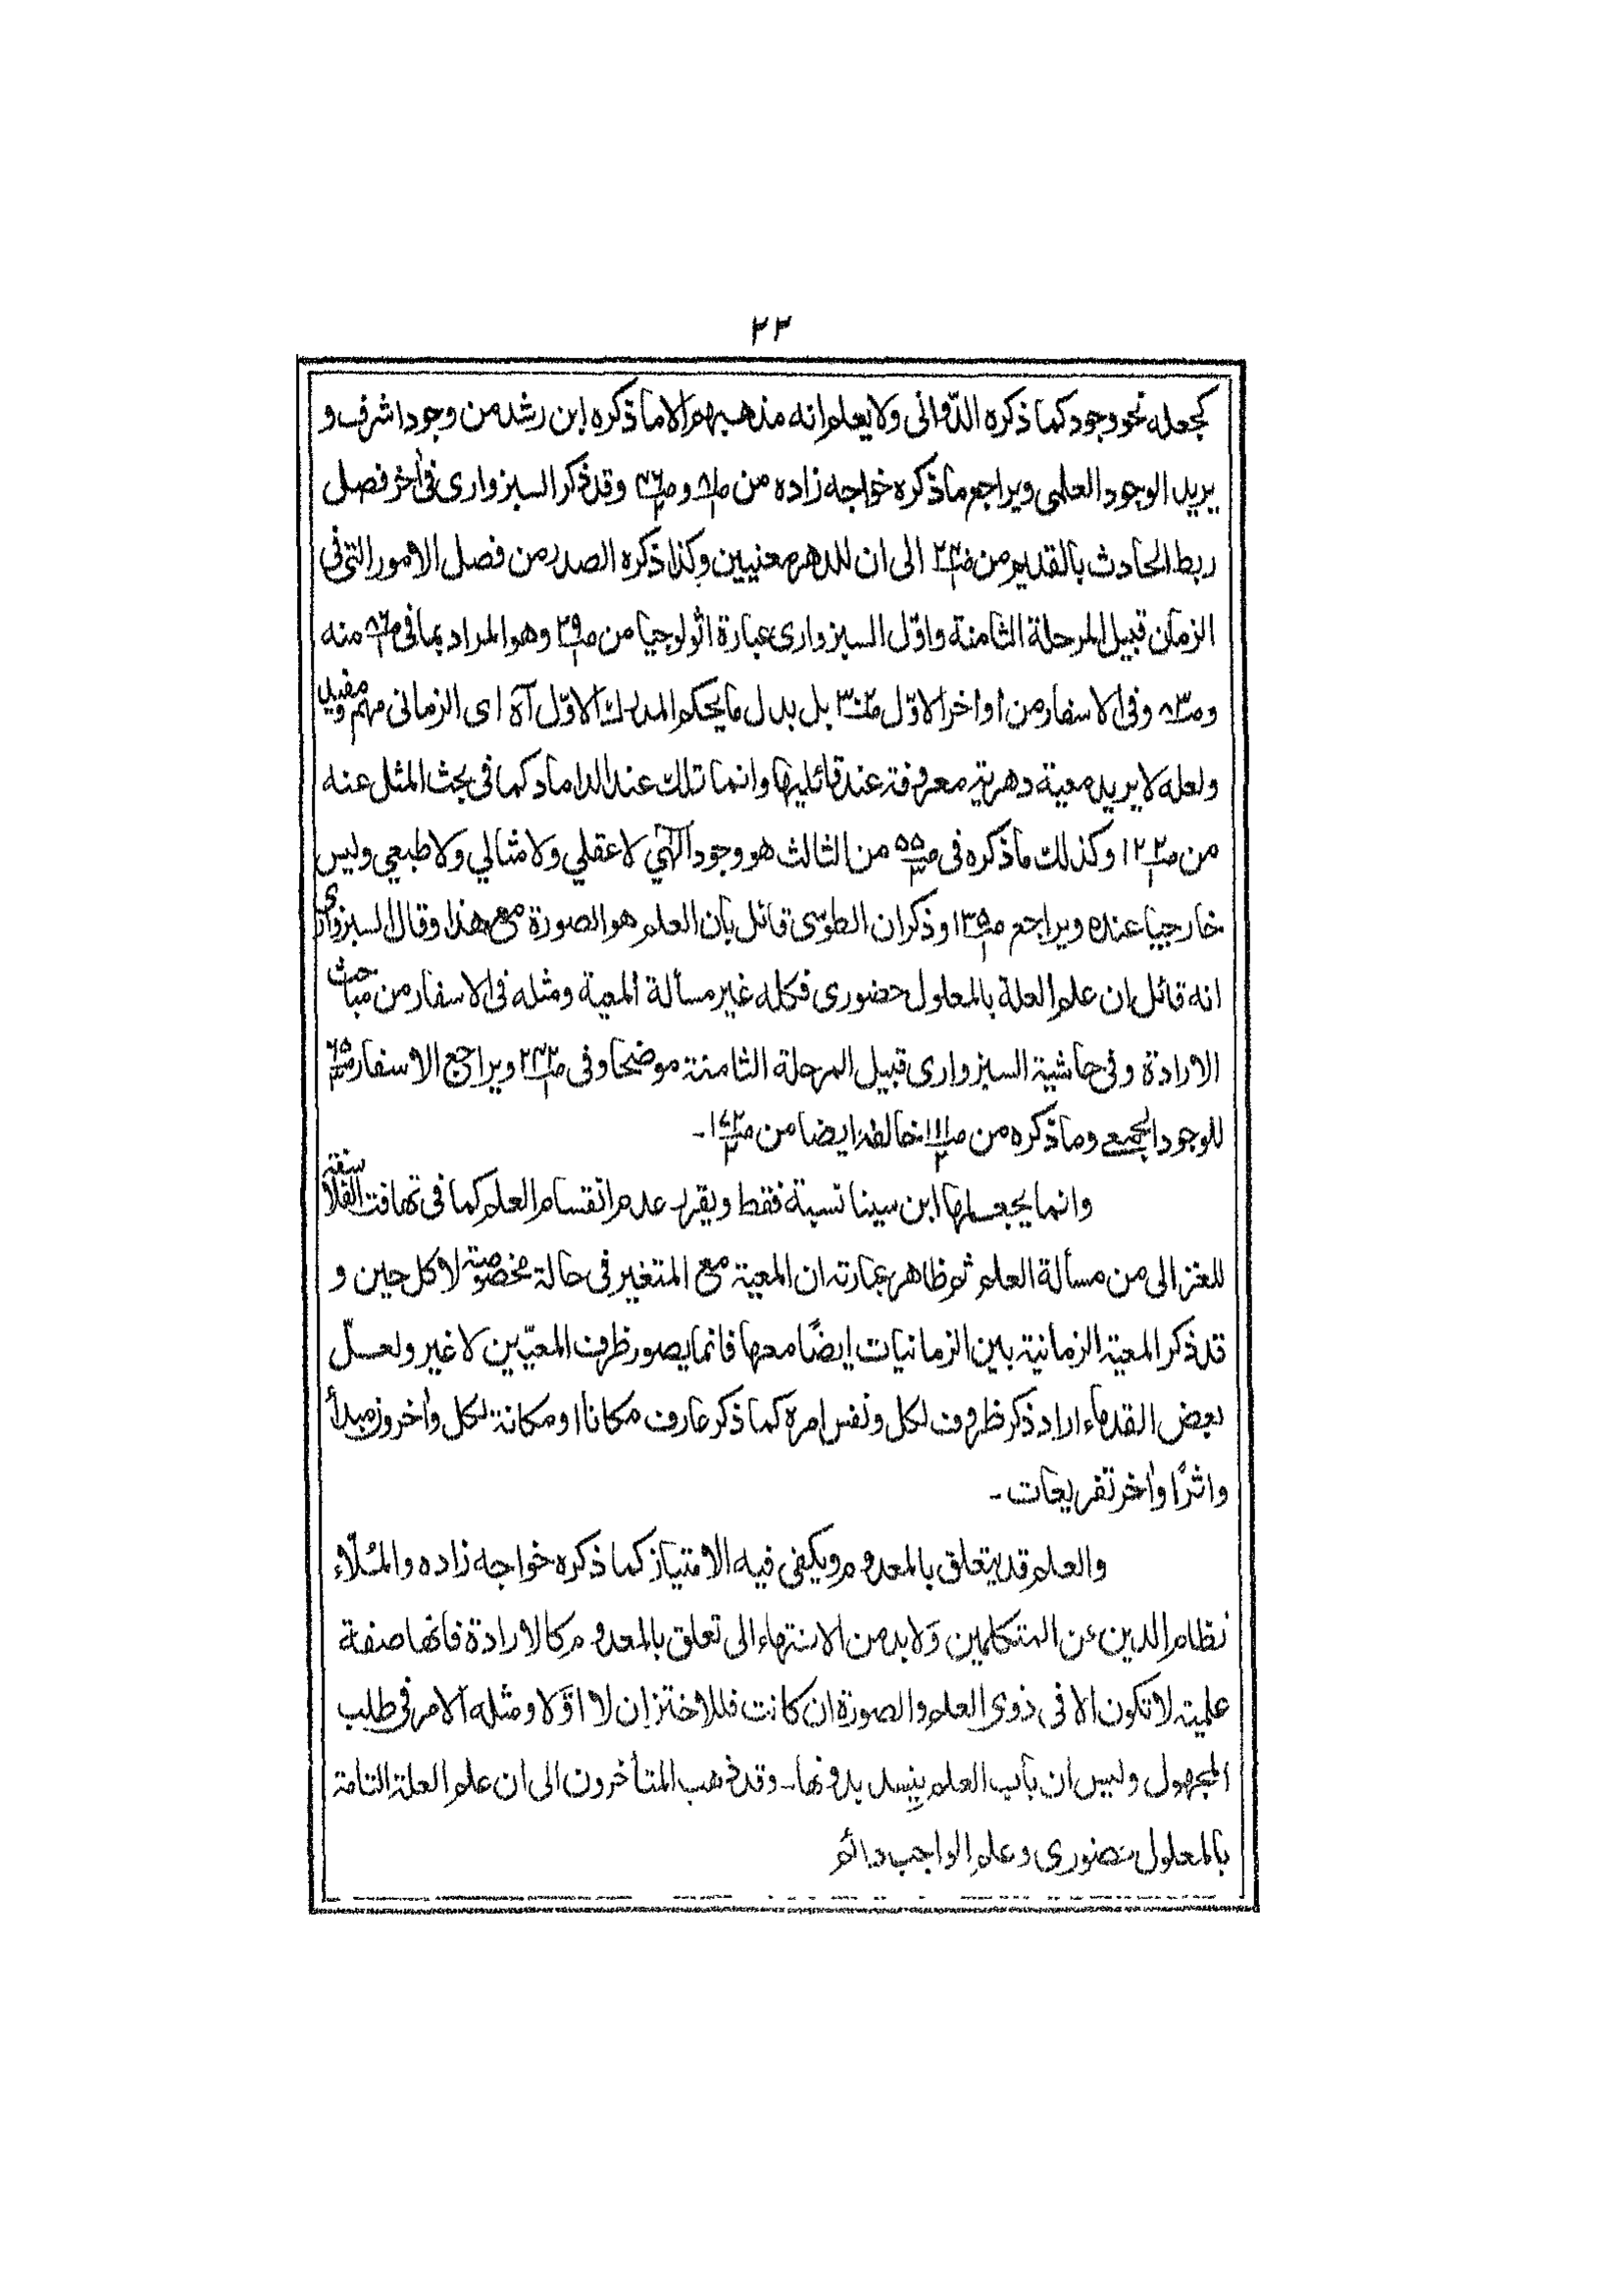 ٢٣
كجعله نحو وجود كما ذكره الدّوانى ولا يعلم انه مذهبهم الا ما ذكره ابن رشد من وجود اشرف و
يريد الوجود العلمى ويراجع ما ذكره خواجه زاده من وقد ذكر السبزوارى فى اٰخر فصل
ربط الحادث بالقديم من الى ان للدهر معنيين وكذا ذكره الصدر من فصل الامور التى فى
الزمان قبيل المرحلة الثامنة واوّل السبزوارى عبارة اثولوجيا من وهو المراد بما فى منه
وفى الاسفار من اواخر الاوّل بل بدل ما يحكم المدرك الاوّل آه اى الزمانى
ولعله لا يريد معية دهرية معروفة عند قائليها وانما تلك عند الداماد كما فى بحث المثل عنه
من وكذلك ما ذكره فى من الثالث هو وجود الٰهي لا عقلي ولا مثالي ولا طبعي وليس
خارجيا عنده ويراجع وذكر ان الطوسى قائل بان العلم هو الصورة مع هذا وقال السبزوارى
انه قائل ان علم العلة بالمعلول حضورى فكله غير مسألة المعية ومثله فى الاسفار من مباحث
الارادة وفى حاشية السبزوارى قبيل المرحلة الثامنة موضحا وفى ويراجع الاسفار
للوجود الجمعى وما ذكره من خالفه ايضا من
وانما يجعلها ابن سينا نسبة فقط ويقرر عدم انقسام العلم كما فى تهافت الفلاسفة
للغزالى من مسألة العلم ثم ظاهر عبارته ان المعية مع المتغير فى حالة مخصوصة لا كل حين و
قد ذكر المعية الزمانية بين الزمانيات ايضًا معها فانما يصور ظرف المعيّين لا غير ولعلّ
بعض القدماء اراد ذكر ظروف لكل ونفس امره كما ذكر عارف مكانا او مكانة لكل واٰخرون مبدأ
واثرًا واٰخر تفريعات۔
والعلم قد يتعلق بالمعدوم ويكفى فيه الامتياز كما ذكره خواجه زاده والملّاء
نظام الدين عن المتكلمين ولا بد من الانتهاء الى تعلق بالمعدوم كالارادة فانها صفة
علمية لا تكون الا فى ذوى العلم والصورة ان كانت فللاختزان لا اوّلا ومثله الامر فى طلب
المجهول وليس ان باب العلم ينسد بدونها۔ وقد ذهب المتأخرون الى ان علم العلة التامة
بالمعلول حضورى وعلم الواجب دائم